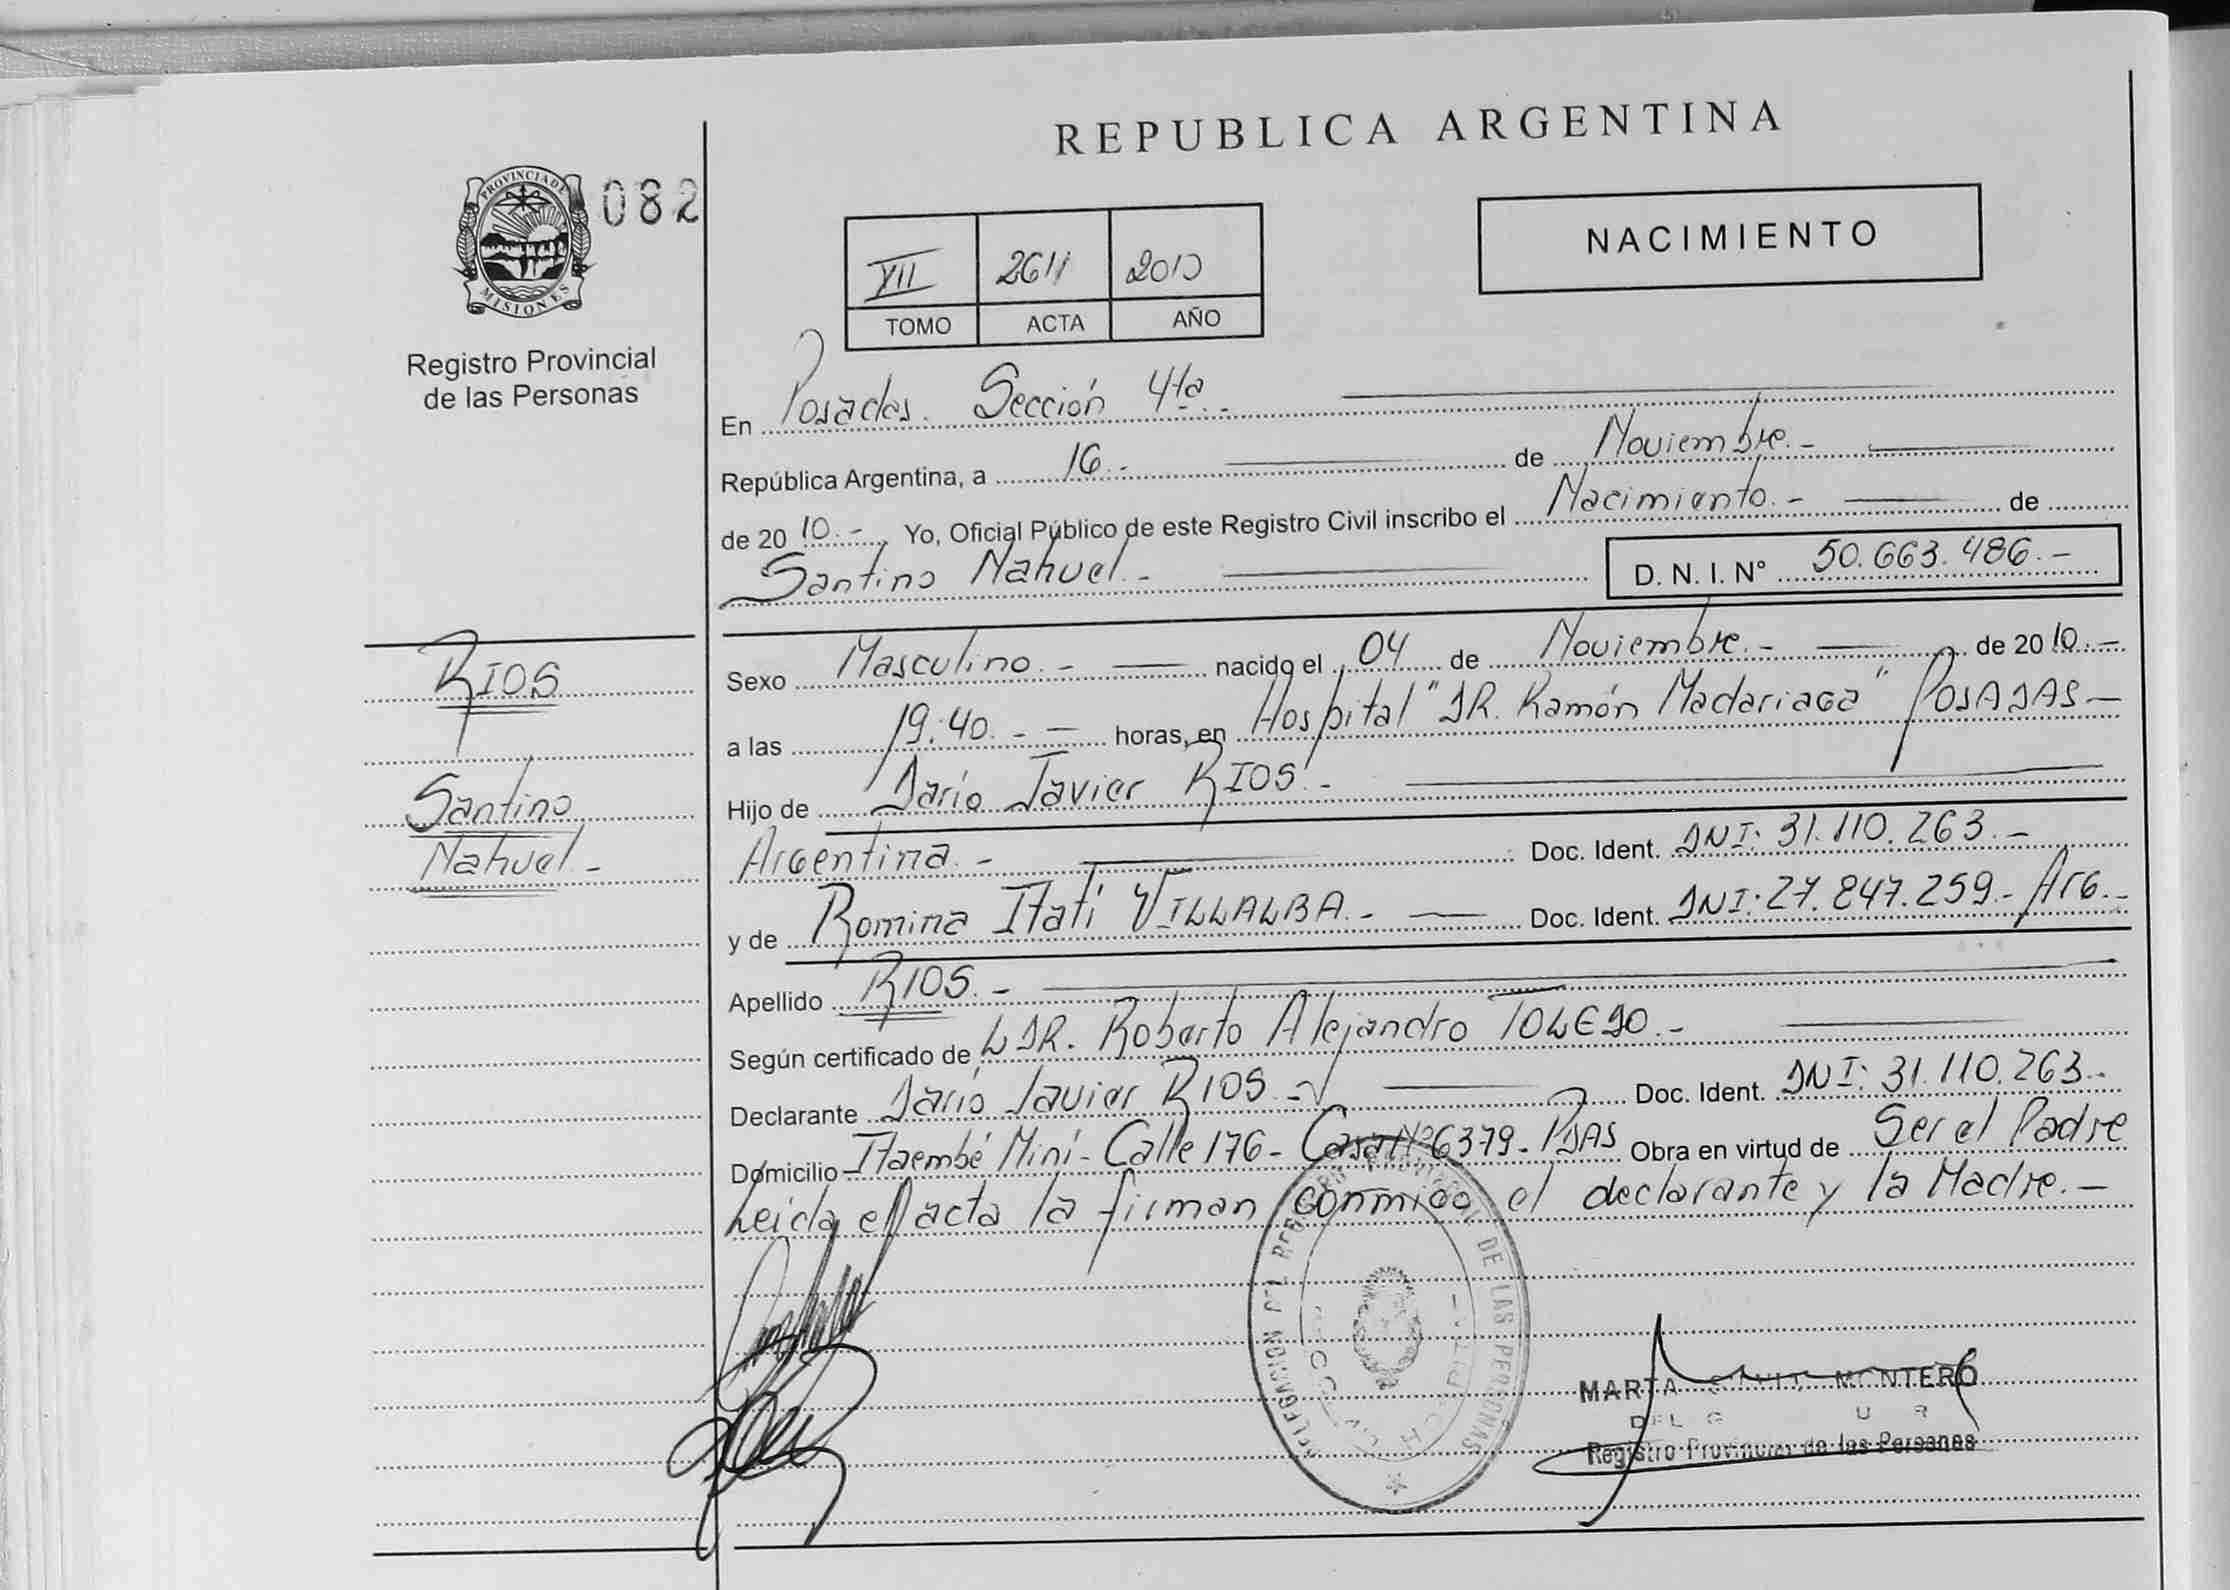 REPUBLICA ARGENTINA
PROVINCIA DE
MISIONES
082
Registro Provincial
de las Personas
VII 2611 2010
TOMO ACTA AÑO
NACIMIENTO
En Posadas. Sección 4ta.-
República Argentina, a 16.- de Noviembre.-
de 2010.- Yo, Oficial Público de este Registro Civil inscribo el Nacimiento.- de
Santino Nahuel.- D. N. I. N° 50.663.486.-
RIOS
Santino
Nahuel.-
Sexo Masculino.- nacido el 04 de Noviembre.- de 2010.-
a las 19:40.- horas, en Hospital "DR. Ramón Madariaga" POSADAS-
Hijo de Darío Javier RIOS.-
Argentina.- Doc. Ident. DNI: 31.110.263.-
y de Romina Itatí VILLALBA.- Doc. Ident. DNI: 27.847.259.- Arg.-
Apellido RIOS.-
Según certificado de L DR. Roberto Alejandro TOLEDO.-
Declarante Darío Javier RIOS.- Doc. Ident. DNI: 31.110.263.-
Domicilio Itaembé Miní- Calle 176- Casa Nº 6379- PDAS Obra en virtud de Ser el Padre
Leída el acta la firman conmigo el declarante y la Madre.-
DELEGACION DEL REGISTRO PROVINCIAL DE LAS PERSONAS
MARTA MONTERO
Registro Provincial de las Personas